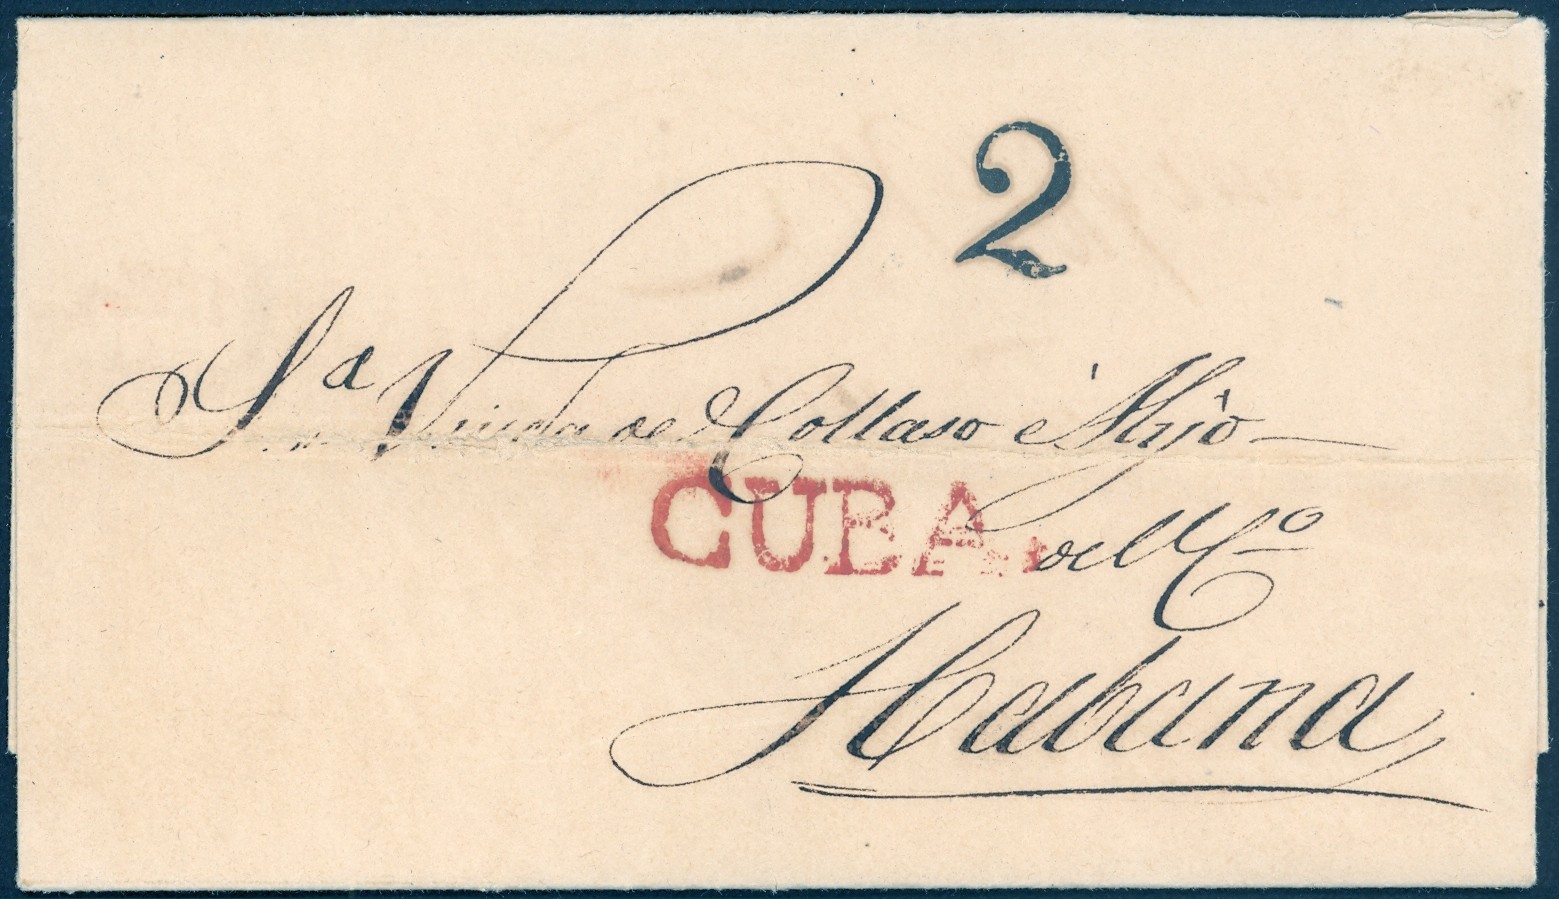 2
Sa Viuda de Collaso é Hijo
CUBA.
del Co
Habana